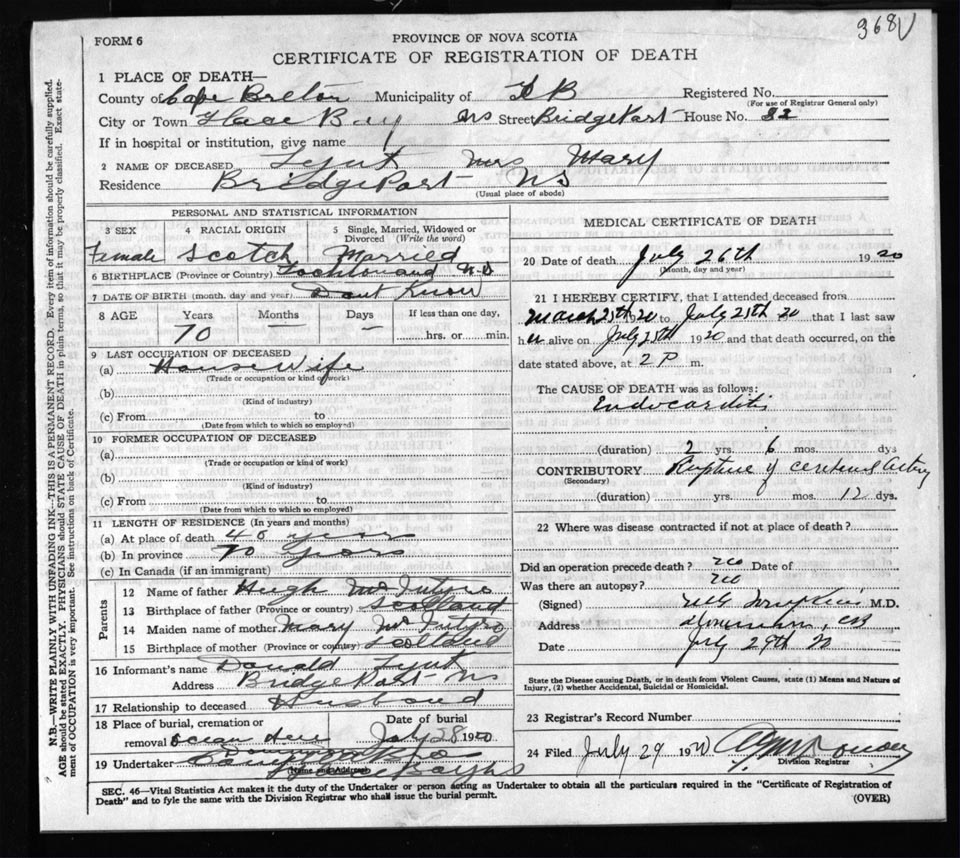 368V
FORM 6
PROVINCE OF NOVA SCOTIA
CERTIFICATE OF REGISTRATION OF DEATH
1 PLACE OF DEATH—
County of Cape Breton Municipality of Registered No.
(For use of Registrar General only)
City or Town Glace Bay NS Street BridgePort House No.
If in hospital or institution, give name
2 NAME OF DECEASED Mrs Mary
Residence BridgePort NS
(Usual place of abode)
PERSONAL AND STATISTICAL INFORMATION
3 SEX 4 RACIAL ORIGIN 5 Single, Married, Widowed or Divorced (Write the word)
Female Scotch Married
6 BIRTHPLACE (Province or Country) N.S
7 DATE OF BIRTH (month, day and year) Dont Know
8 AGE Years Months Days If less than one day,
70 — — hrs. or min.
9 LAST OCCUPATION OF DECEASED
(a) House Wife
(Trade or occupation or kind of work)
(b)
(Kind of industry)
(c) From to
(Date from which to which so employed)
10 FORMER OCCUPATION OF DECEASED
(a)
(Trade or occupation or kind of work)
(b)
(Kind of industry)
(c) From to
(Date from which to which so employed)
11 LENGTH OF RESIDENCE (In years and months)
(a) At place of death 40 years
(b) In province 70 years
(c) In Canada (if an immigrant)
Parents
12 Name of father Hugh McIntyre
13 Birthplace of father (Province or country) Scotland
14 Maiden name of mother Mary McIntyre
15 Birthplace of mother (Province or country) Scotland
16 Informant's name Donald
Address BridgePort NS
17 Relationship to deceased Husband
18 Place of burial, cremation or Date of burial
removal July 28 1920
19 Undertaker
(Name and Address)
MEDICAL CERTIFICATE OF DEATH
20 Date of death July 26th 1920
(Month, day and year)
21 I HEREBY CERTIFY, that I attended deceased from
March 25th 1920 to July 25th 20 that I last saw
her alive on July 25th 1920 and that death occurred, on the
date stated above, at 2 P m.
The CAUSE OF DEATH was as follows:
Endocarditis
(duration) 2 yrs. 6 mos. dys
CONTRIBUTORY Rupture of cerebral Artery
(Secondary)
(duration) yrs. mos. 12 dys.
22 Where was disease contracted if not at place of death?
Did an operation precede death? no Date of
Was there an autopsy? no
(Signed) M.D.
Address
Date July 29th 20
State the Disease causing Death, or in death from Violent Causes, state (1) Means and Nature of
Injury, (2) whether Accidental, Suicidal or Homicidal.
23 Registrar's Record Number
24 Filed July 29 1920
Division Registrar
SEC. 46—Vital Statistics Act makes it the duty of the Undertaker or person acting as Undertaker to obtain all the particulars required in the "Certificate of Registration of
Death" and to fyle the same with the Division Registrar who shall issue the burial permit.
(OVER)
N.B.—WRITE PLAINLY WITH UNFADING INK—THIS IS A PERMANENT RECORD. Every item of information should be carefully supplied.
AGE should be stated EXACTLY. PHYSICIANS should STATE CAUSE OF DEATH in plain terms, so that it may be properly classified. Exact state-
ment of OCCUPATION is very important. See instructions on back of Certificate.